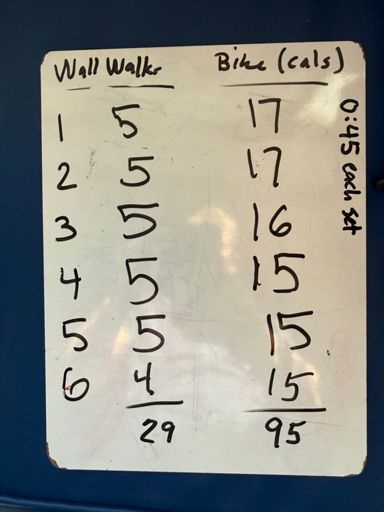 Wall Walks Bike (cals)
1 5 17
2 5 17
3 5 16
4 5 15
5 5 15
6 4 15
29 95
0:45 each set